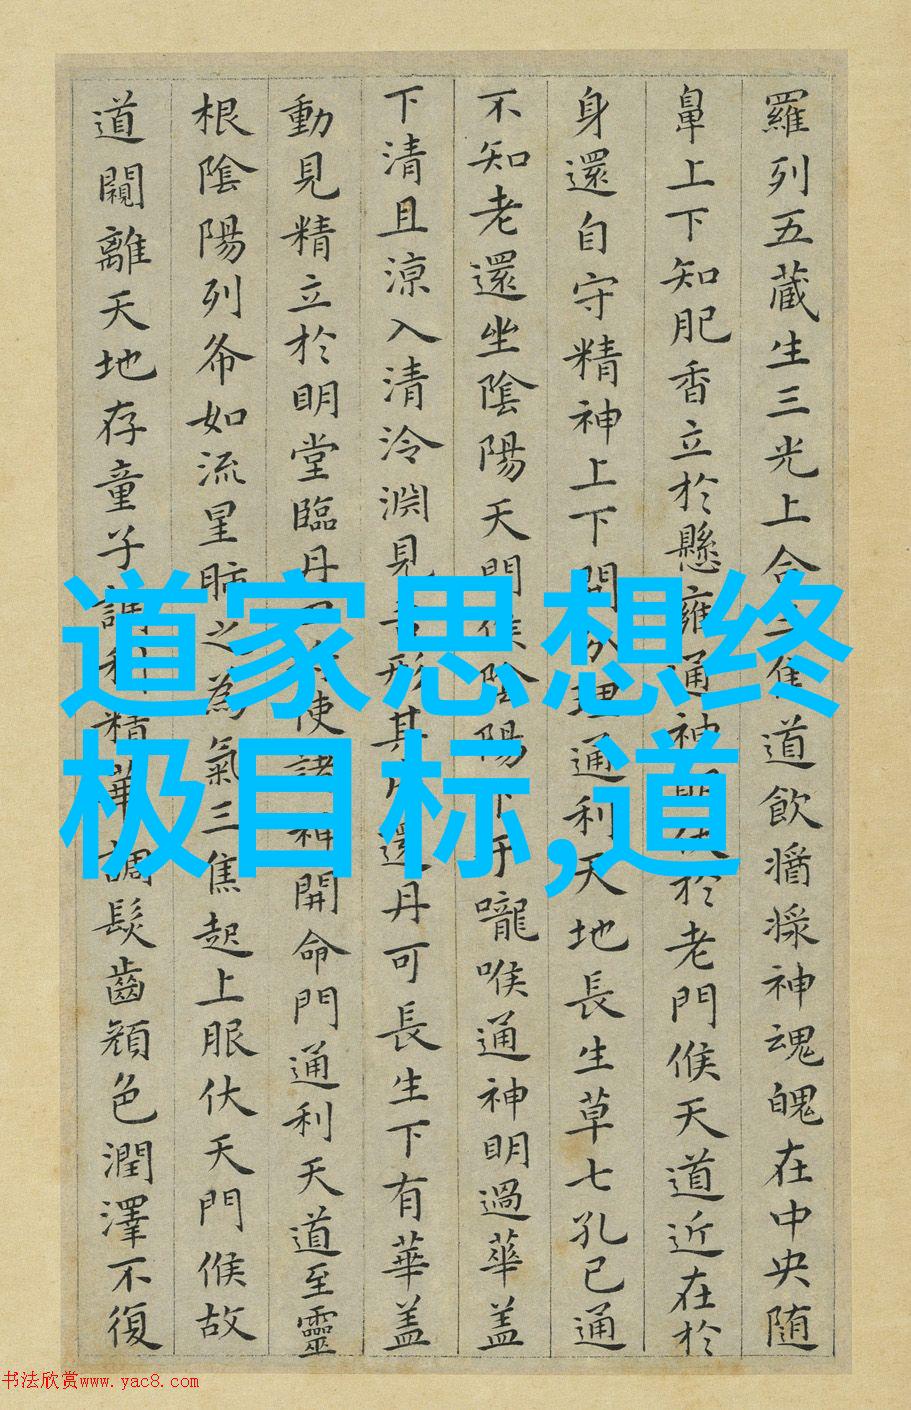 道家思想终
极目标,道
羅列五蔵生三光上合道飲漿神魂魄在中央随
鼻上下知肥香立於懸雍通神於老門候天道近在於
身還自守精神上下開理通利天地長生草七孔已通
不知老還坐陰陽天門候陰陽下于嚨喉通神明過華盖
下清且涼入清泠淵見吾形其還丹可長生下有華盖
動見精立於明堂臨丹使諸神開命門通利天道至靈
根陰陽列布如流星肺之為氣三焦起上服伏天門候故
道闚離天地存童子調和精華調髮齒顔色潤澤不復
书法欣赏www.yac8.com